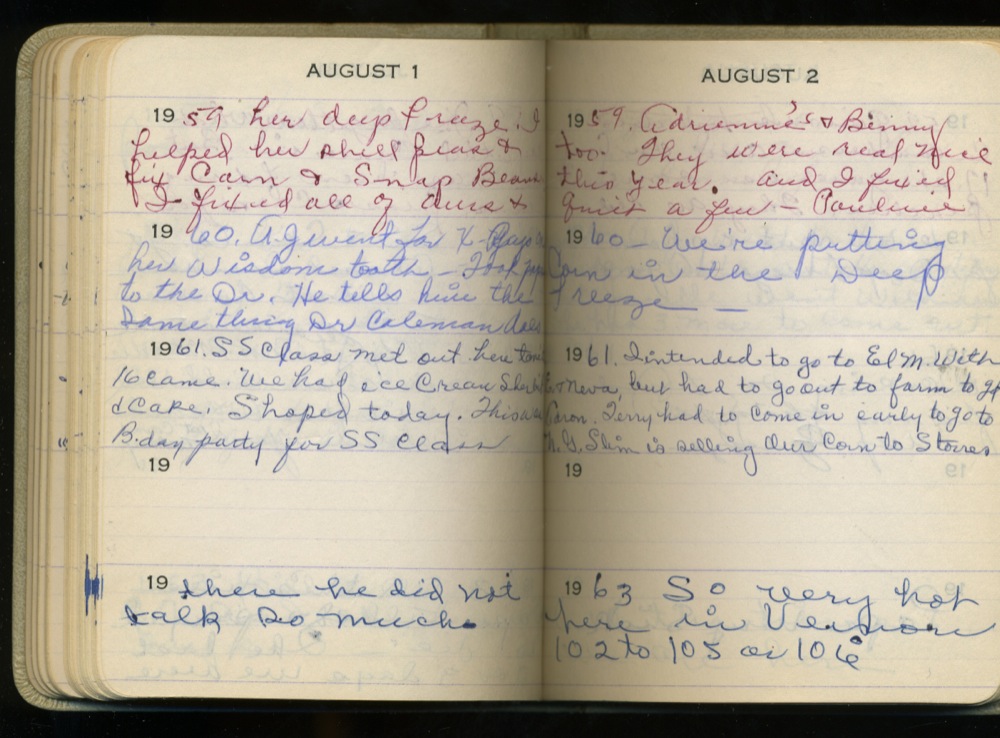 AUGUST 1
19 59 her deep freeze. I
helped her shell peas &
fix Corn & Snap Beans
I fixed all of ours &
19 60. A.J went for X-Rays
her Wisdom tooth - Took
to the Dr. He tells him the
Same thing Dr Coleman does
1961. SS Class met out here
16 came. We had ice Cream Sherbet
& Cake. Shoped today. This was
B.day party for SS Class
19
19 there he did not
talk so much.
AUGUST 2
19 59. Adrienne's & Binny
too. They were real nice
this year. and I fixed
quit a few - Pauline
19 60 - We're putting
Corn in the Deep
freeze — —
1961. I intended to go to El M. With
Neva, but had to go out to farm to get
Caron. Terry had to come in early to go to
N.G. Slim is selling Our Corn to Stores
19
19 63 So very hot
here in Vernon
102 to 105 or 106